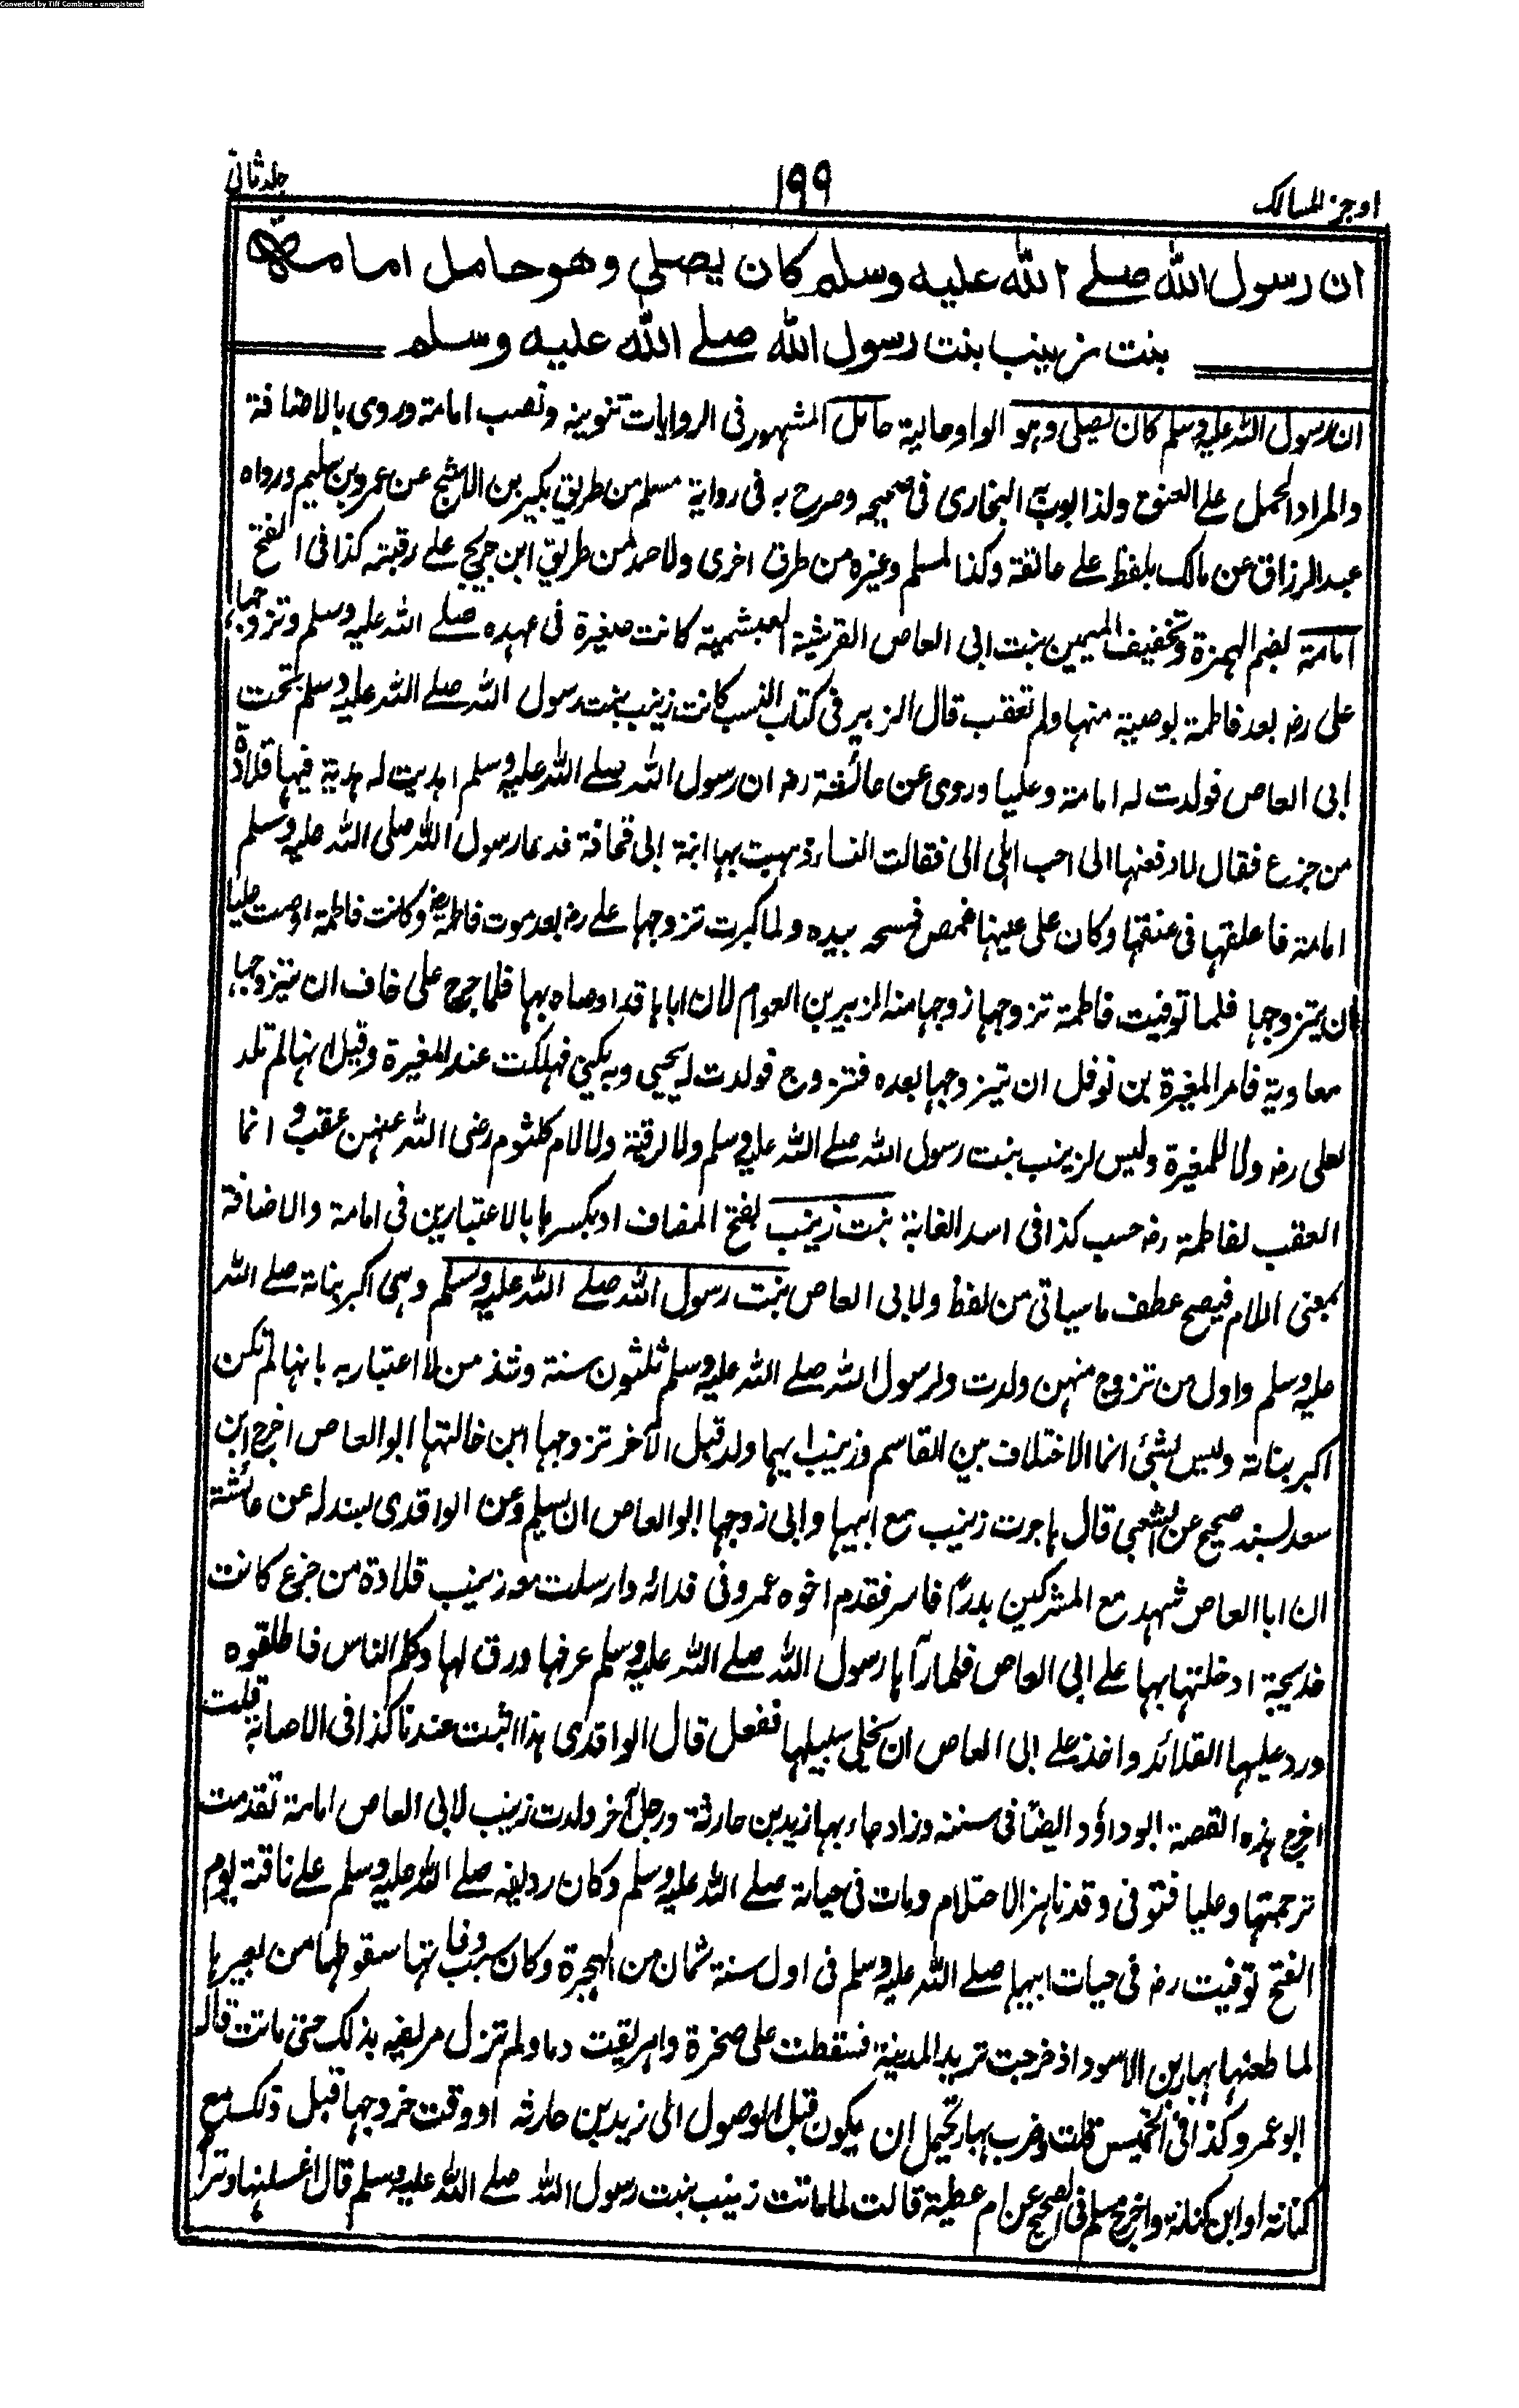 Converted by Tiff Combine - unregistered
اوجز المسالك
١٩٩
جلد ثانى
ان رسول الله صلے الله عليه وسلم كان يصلي وهو حامل امامة
بنت زينب بنت رسول الله صلے الله عليه وسلم
ان رسول الله عليه وسلم كان يصلى وهو الواو حالية حامل المشهور فى الروايات تنوينه ونصب امامة وروى بالاضافة
والمراد الحمل على العنق ولذا بوب البخارى فى صحيحه وصرح به فى رواية مسلم من طريق بكير بن الاشج عن عمرو بن سليم ورواه
عبد الرزاق عن مالك بلفظ على عاتقه وكذا لمسلم وغيره من طرق اخرى ولاحمد من طريق ابن جريج على رقبته كذا فى الفتح
امامة بضم الهمزة وتخفيف الميمين بنت ابى العاص القرشية العبشمية كانت صغيرة فى عهده صلے الله عليه وسلم وتزوجها
على رض بعد فاطمة بوصية منها ولم تعقب قال الزبير فى كتاب النسب كانت زينب بنت رسول الله صلے الله عليه وسلم تحت
ابى العاص فولدت له امامة وعليا وروى عن عائشة رض ان رسول الله صلے الله عليه وسلم اهديت له هدية فيها قلادة
من جزع فقال لادفعنها الى احب اهلى الى فقالت النساء ذهبت بها ابنة ابى قحافة فدعا رسول الله صلى الله عليه وسلم
امامة فاعلقها فى عنقها وكان على عينها غمص فمسحه بيده ولما كبرت تزوجها على رض بعد موت فاطمة رض وكانت فاطمة اوصت عليا
ان يتزوجها فلما توفيت فاطمة تزوجها زوجها منه الزبير بن العوام لان اباها قد اوصاه بها فلما جرح على خاف ان يتزوجها
معاوية فامر المغيرة بن نوفل ان يتزوجها بعده فتزوج فولدت له يحيى وبه يكنى فهلكت عند المغيرة وقيل انها لم تلد
لعلى رض ولا للمغيرة وليس لزينب بنت رسول الله صلے الله عليه وسلم ولا لرقية ولا لام كلثوم رضى الله عنهن عقب وانما
العقب لفاطمة رض حسب كذا فى اسد الغابة بنت زينب بفتح المضاف او بكسرها بالاعتبارين فى امامة والاضافة
بمعنى اللام فيصح عطف ما سياتى من لفظ ولابى العاص بنت رسول الله صلے الله عليه وسلم وهى اكبر بناته صلے الله
عليه وسلم واول من تزوج منهن ولدت ولرسول الله صلے الله عليه وسلم ثلثون سنة وشذ من لا اعتبار به بانها لم تكن
اكبر بناته وليس بشئ انما الاختلاف بين القاسم وزينب ايهما ولد قبل الآخر تزوجها ابن خالتها ابو العاص اخرج ابن
سعد بسند صحيح عن الشعبى قال هاجرت زينب مع ابيها وابى زوجها ابو العاص ان يسلم وعن الواقدى بسند له عن عائشة
ان ابا العاص شهد مع المشركين بدرًا فاسر فقدم اخوه عمرو فى فدائه وارسلت معه زينب قلادة من جزع كانت
خديجة ادخلتها بها على ابى العاص فلما رآها رسول الله صلے الله عليه وسلم عرفها ورق لها وكلم الناس فاطلقوه
ورد عليها القلائد واخذ على ابى العاص ان يخلى سبيلها ففعل قال الواقدى هذا اثبت عندنا كذا فى الاصابة قلت
اخرج هذه القصة ابو داؤد ايضًا فى سننه وزاد جاء بها زيد بن حارثة ورجل آخر ولدت زينب لابى العاص امامة تقدمت
ترجمتها وعليا فتوفى وقد ناهز الاحتلام ومات فى حياته صلے الله عليه وسلم وكان رديفه صلے الله عليه وسلم على ناقته يوم
الفتح توفيت رض فى حيات ابيها صلے الله عليه وسلم فى اول سنة ثمان من الهجرة وكان سبب وفاتها سقوطها من بعيرها
لما طعنها هبار بن الاسود اذ خرجت تريد المدينة فسقطت على صخرة واهريقت دما ولم تزل مريضة بذلك حتى ماتت قاله
ابو عمرو كذا فى الخميس قلت وضرب هبار يحتمل ان يكون قبل الوصول الى زيد بن حارثه او وقت خروجها قبل ذلك مع
كنانة او ابن كنانة واخرج مسلم فى الصحيح عن ام عطية قالت لما ماتت زينب بنت رسول الله صلے الله عليه وسلم قال اغسلنها وترًا